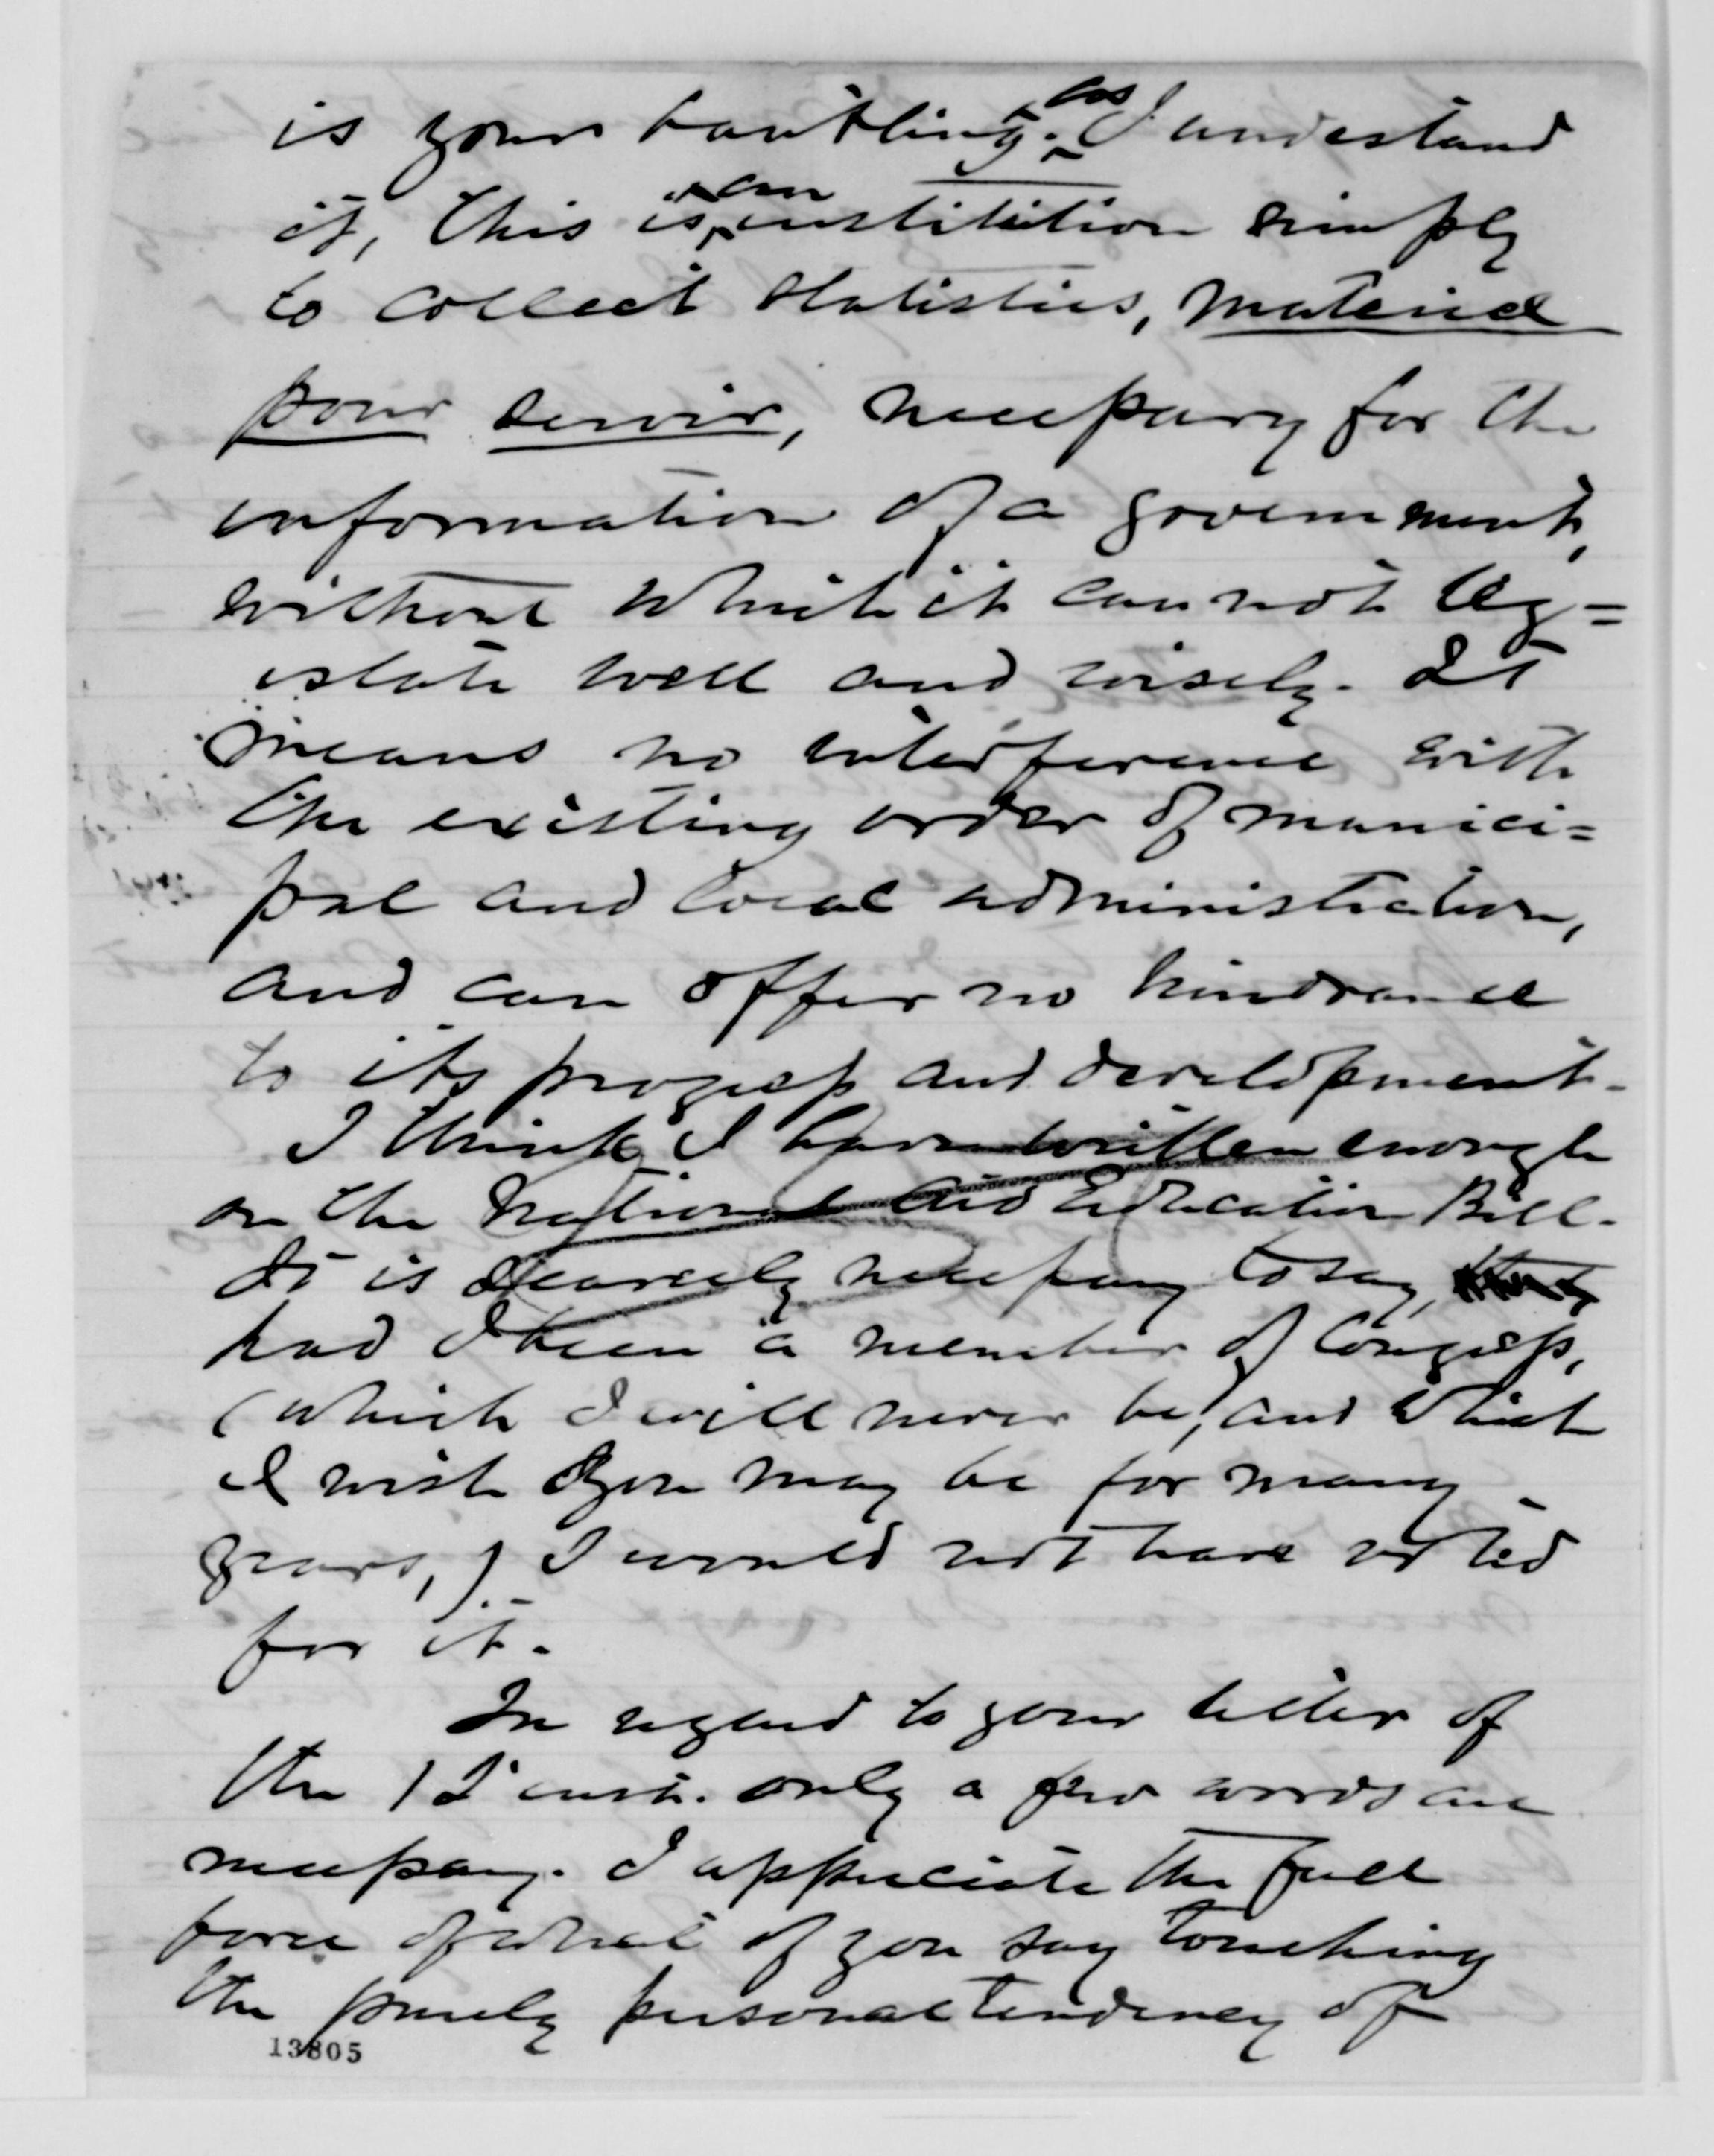 is your bantling. as I understand
it, this is an institution simply
to collect statistics, material
pour servir, necessary for the
information of a government,
without which it cannot leg=
islate well and wisely. It
means no interference with
the existing order of munici=
pal and local administration,
and can offer no hindrance
to its progress and development.
I think I have written enough
on the National Aid Education Bill.
It is scarcely necessary to say,
had I been a member of Congress,
(which I will never be, and which
I wish you may be for many
years,) I would not have voted
for it.
In regard to your letter of
the 12 inst. only a few words are
necessary. I appreciate the full
force of what of you say touching
the purely personal tendency of
13805